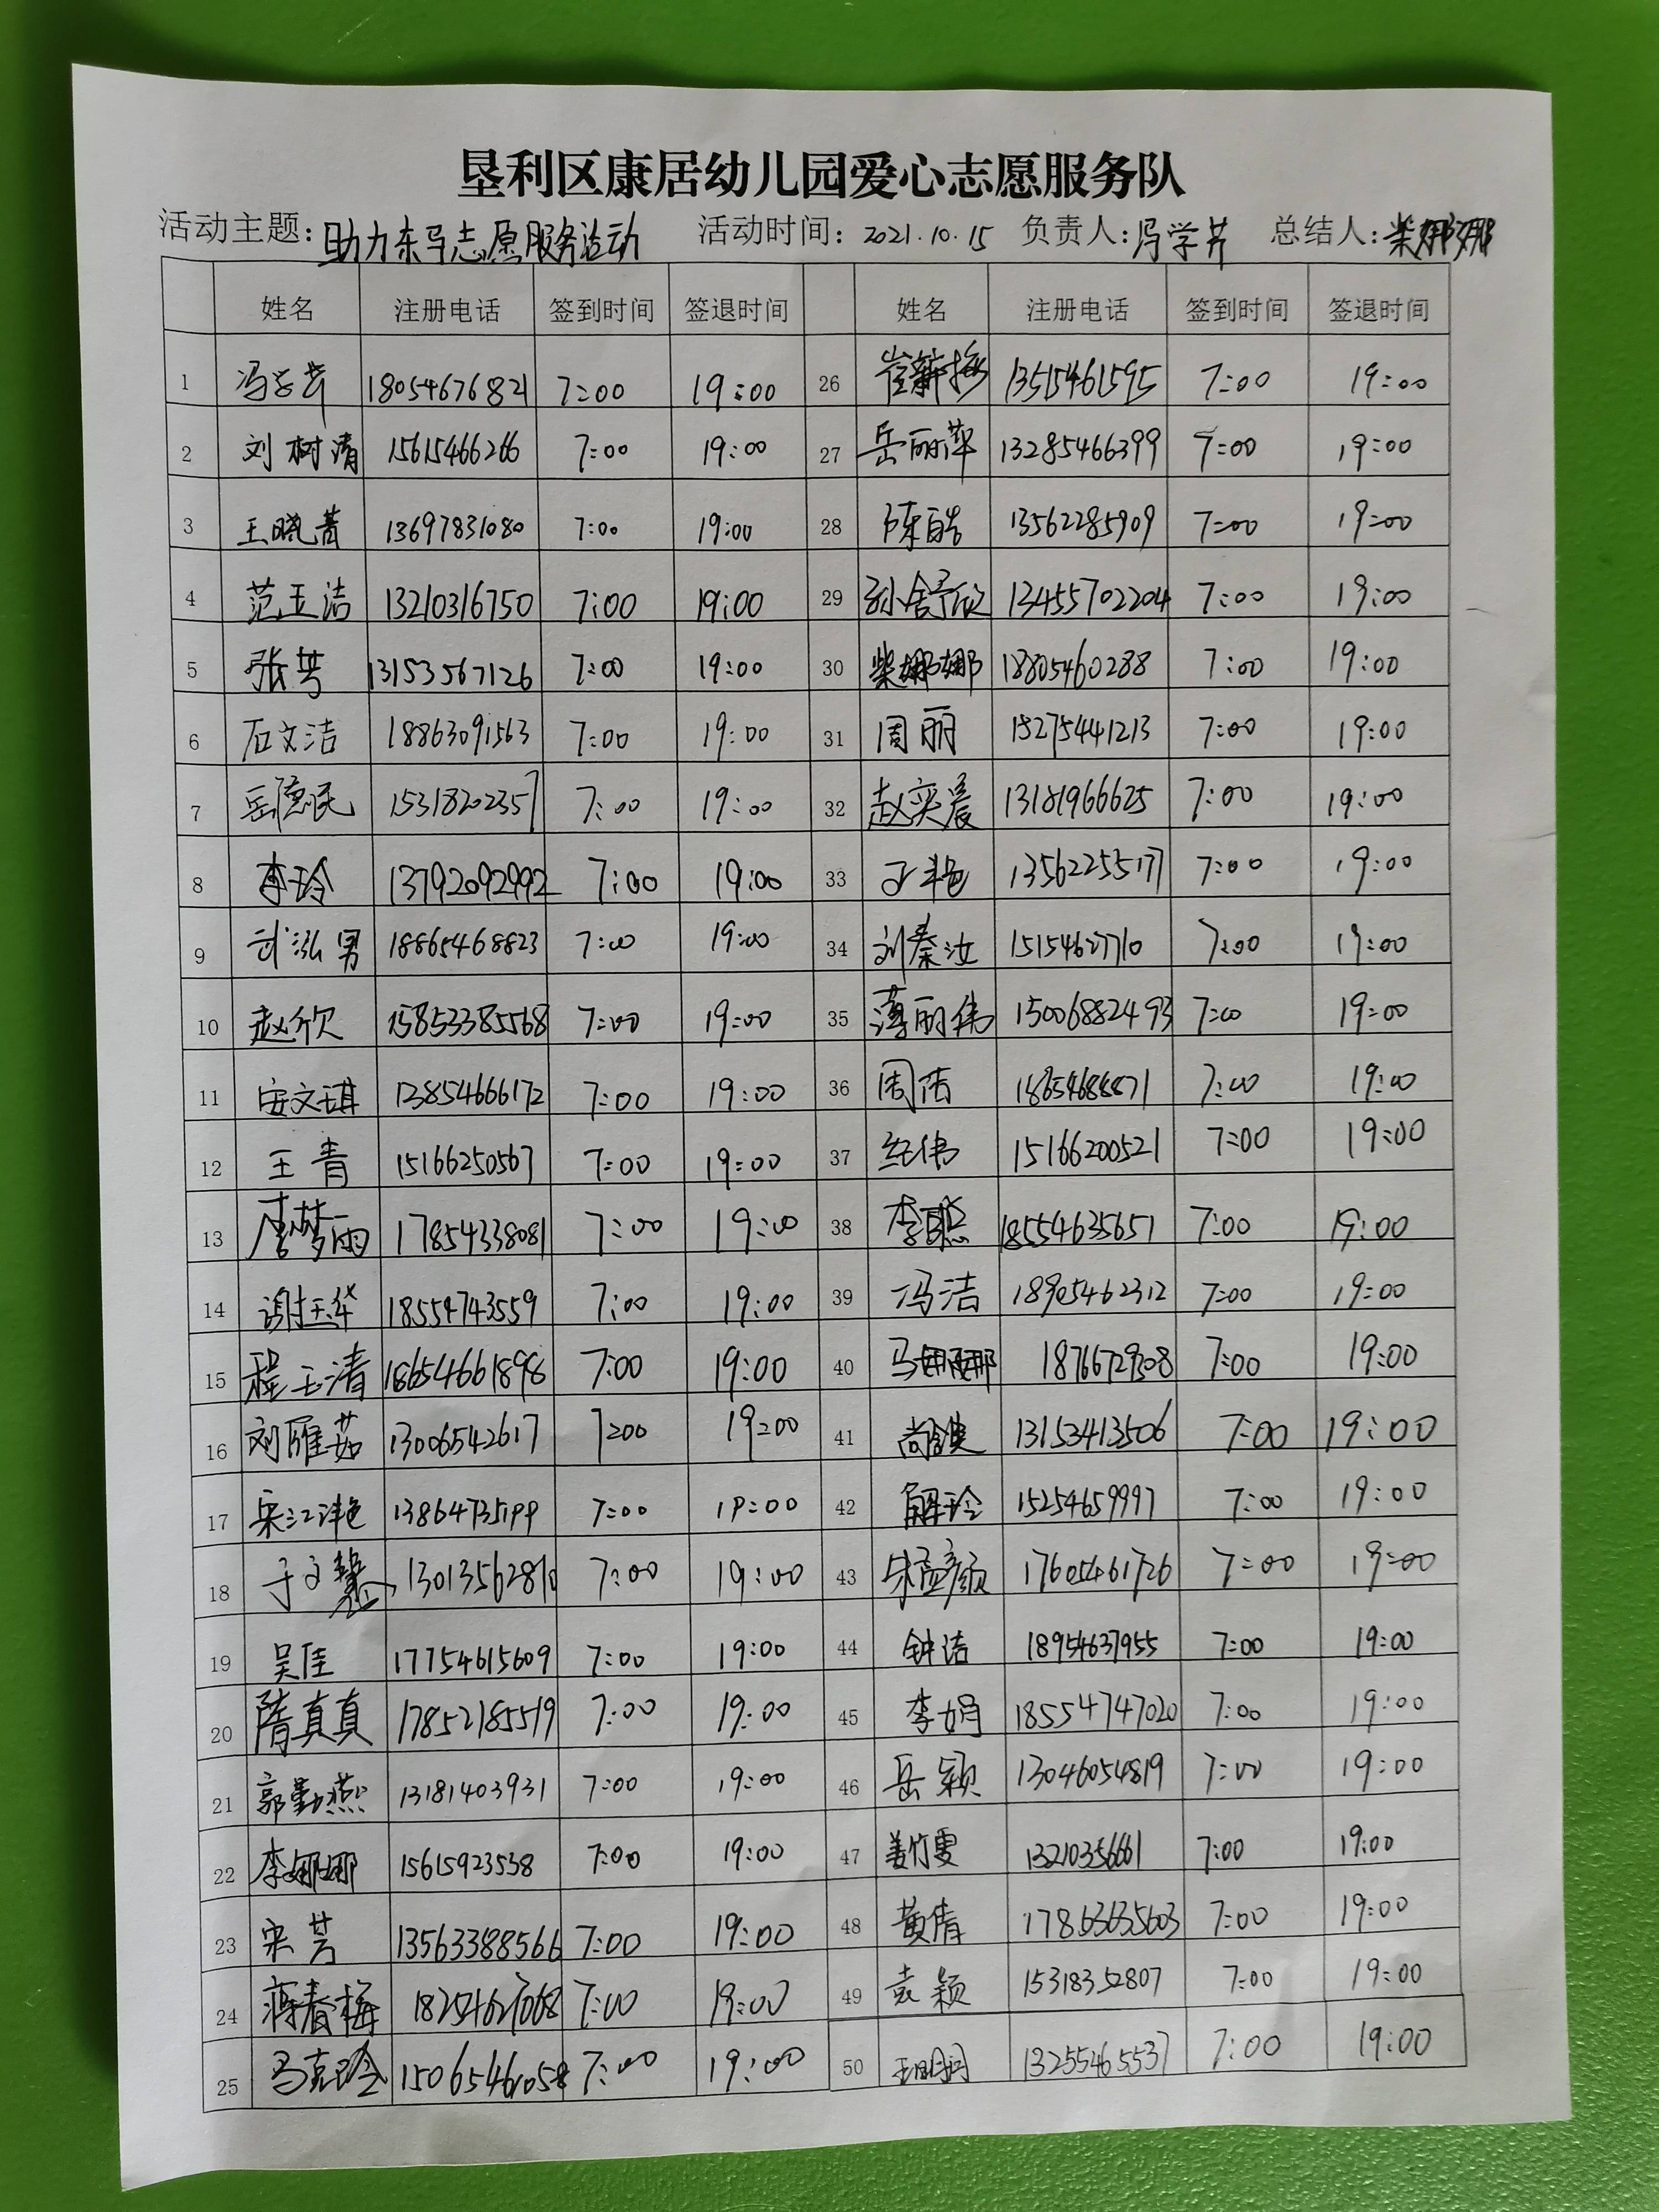 垦利区康居幼儿园爱心志愿服务队
活动主题：助力东马志愿服务活动 活动时间：2021.10.15 负责人：冯学芹 总结人：柴娜娜
姓名 注册电话 签到时间 签退时间 姓名 注册电话 签到时间 签退时间
1 冯学芹 18054676821 7:00 19:00 26 13515461595 7:00 19:00
2 刘树清 15615466266 7:00 19:00 27 岳丽萍 13285466399 7:00 19:00
3 王晓菁 13697831080 7:00 19:00 28 陈皓 13562285909 7:00 19:00
4 范玉洁 13210316750 7:00 19:00 29 孙舒欣 13455702204 7:00 19:00
5 张芳 13153567126 7:00 19:00 30 柴娜娜 18805460288 7:00 19:00
6 石文洁 18863091563 7:00 19:00 31 周丽 15275441213 7:00 19:00
7 岳德民 15318202357 7:00 19:00 32 赵奕晨 13181966625 7:00 19:00
8 李玲 13792092992 7:00 19:00 33 13562255177 7:00 19:00
9 武泓男 18865468823 7:00 19:00 34 刘秦汝 15154627710 7:00 19:00
10 赵欣 15853385568 7:00 19:00 35 薄丽伟 15006882493 7:00 19:00
11 安文琪 13854666172 7:00 19:00 36 周蓓 7:00 19:00
12 王青 15166250567 7:00 19:00 37 纪伟 15166200521 7:00 19:00
13 李梦雨 17854338081 7:00 19:00 38 李聪 18554635651 7:00 19:00
14 谢玉华 18554743559 7:00 19:00 39 冯洁 18905462312 7:00 19:00
15 程玉清 18654661898 7:00 19:00 40 马娜娜 18766729508 7:00 19:00
16 刘雅茹 13006542617 7:00 19:00 41 尚健 13153413506 7:00 19:00
17 宋江艳 13864735199 7:00 19:00 42 解玲 15254659997 7:00 19:00
18 于文慧 13013562810 7:00 19:00 43 朱孟颜 17605461726 7:00 19:00
19 吴佳 17754615609 7:00 19:00 44 钟洁 18954637955 7:00 19:00
20 隋真真 17852185519 7:00 19:00 45 李娟 18554747020 7:00 19:00
21 郭勤燕 13181403931 7:00 19:00 46 岳颖 13046054819 7:00 19:00
22 李娜娜 15615923538 7:00 19:00 47 姜竹雯 13210356661 7:00 19:00
23 宋芳 13563388566 7:00 19:00 48 黄倩 17863635603 7:00 19:00
24 蒋春梅 18254627068 7:00 19:00 49 袁颖 15318352807 7:00 19:00
25 马克玲 15065461058 7:00 19:00 50 王明月 13255465537 7:00 19:00